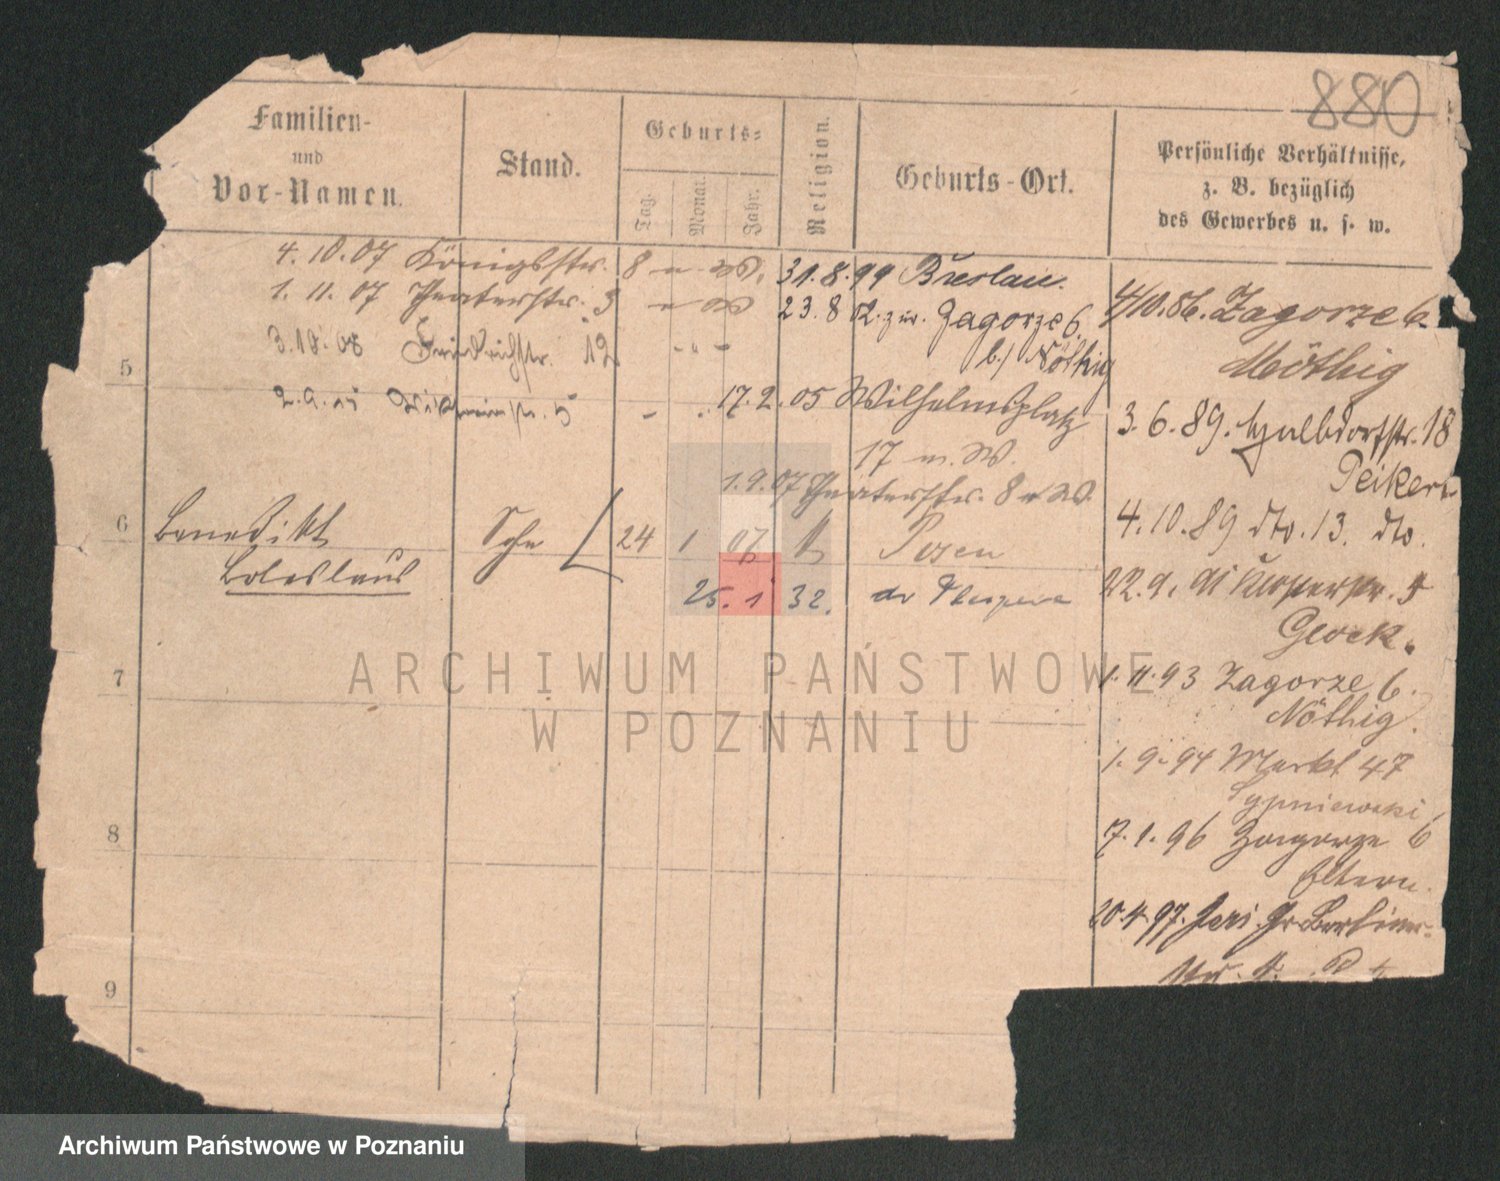 880
Familien-
und
Vor-Namen.
Stand.
Geburts-
Tag.
Monat.
Jahr.
Religion.
Geburts-Ort.
Persönliche Verhältnisse,
z. B. bezüglich
des Gewerbes u. s. w.
4. 10. 07 Königsstr. 8
1. 11. 07 Theaterstr. 3
3. 10. 08 Friedrichstr. 12
31. 8. 99 Breslau.
23. 8 02. zur. Zagorze 6.
b/ Nöthig
17. 2. 05 Wilhelmsplatz
17 m. W.
1. 9. 07 Theaterstr. 8
5
6
Benedikt
Boleslaus
Sohn
24 1 07 Posen
25. 1 32.
7
8
9
4/10. 86. Zagorze 6.
Nöthig
3. 6. 89. Halbdorfstr. 18
Peikert
4. 10. 89 dto. 13. dto.
22. 9. 91 Klosterstr. 5
Glock.
1. 11. 93 Zagorze 6.
Nöthig.
1. 9. 94 Markt 47
Sypniewski
7. 1. 96 Zagorze 6
Eltern.
20. 4. 97. Gr. Berliner-
ARCHIWUM PAŃSTWOWE
W POZNANIU
Archiwum Państwowe w Poznaniu